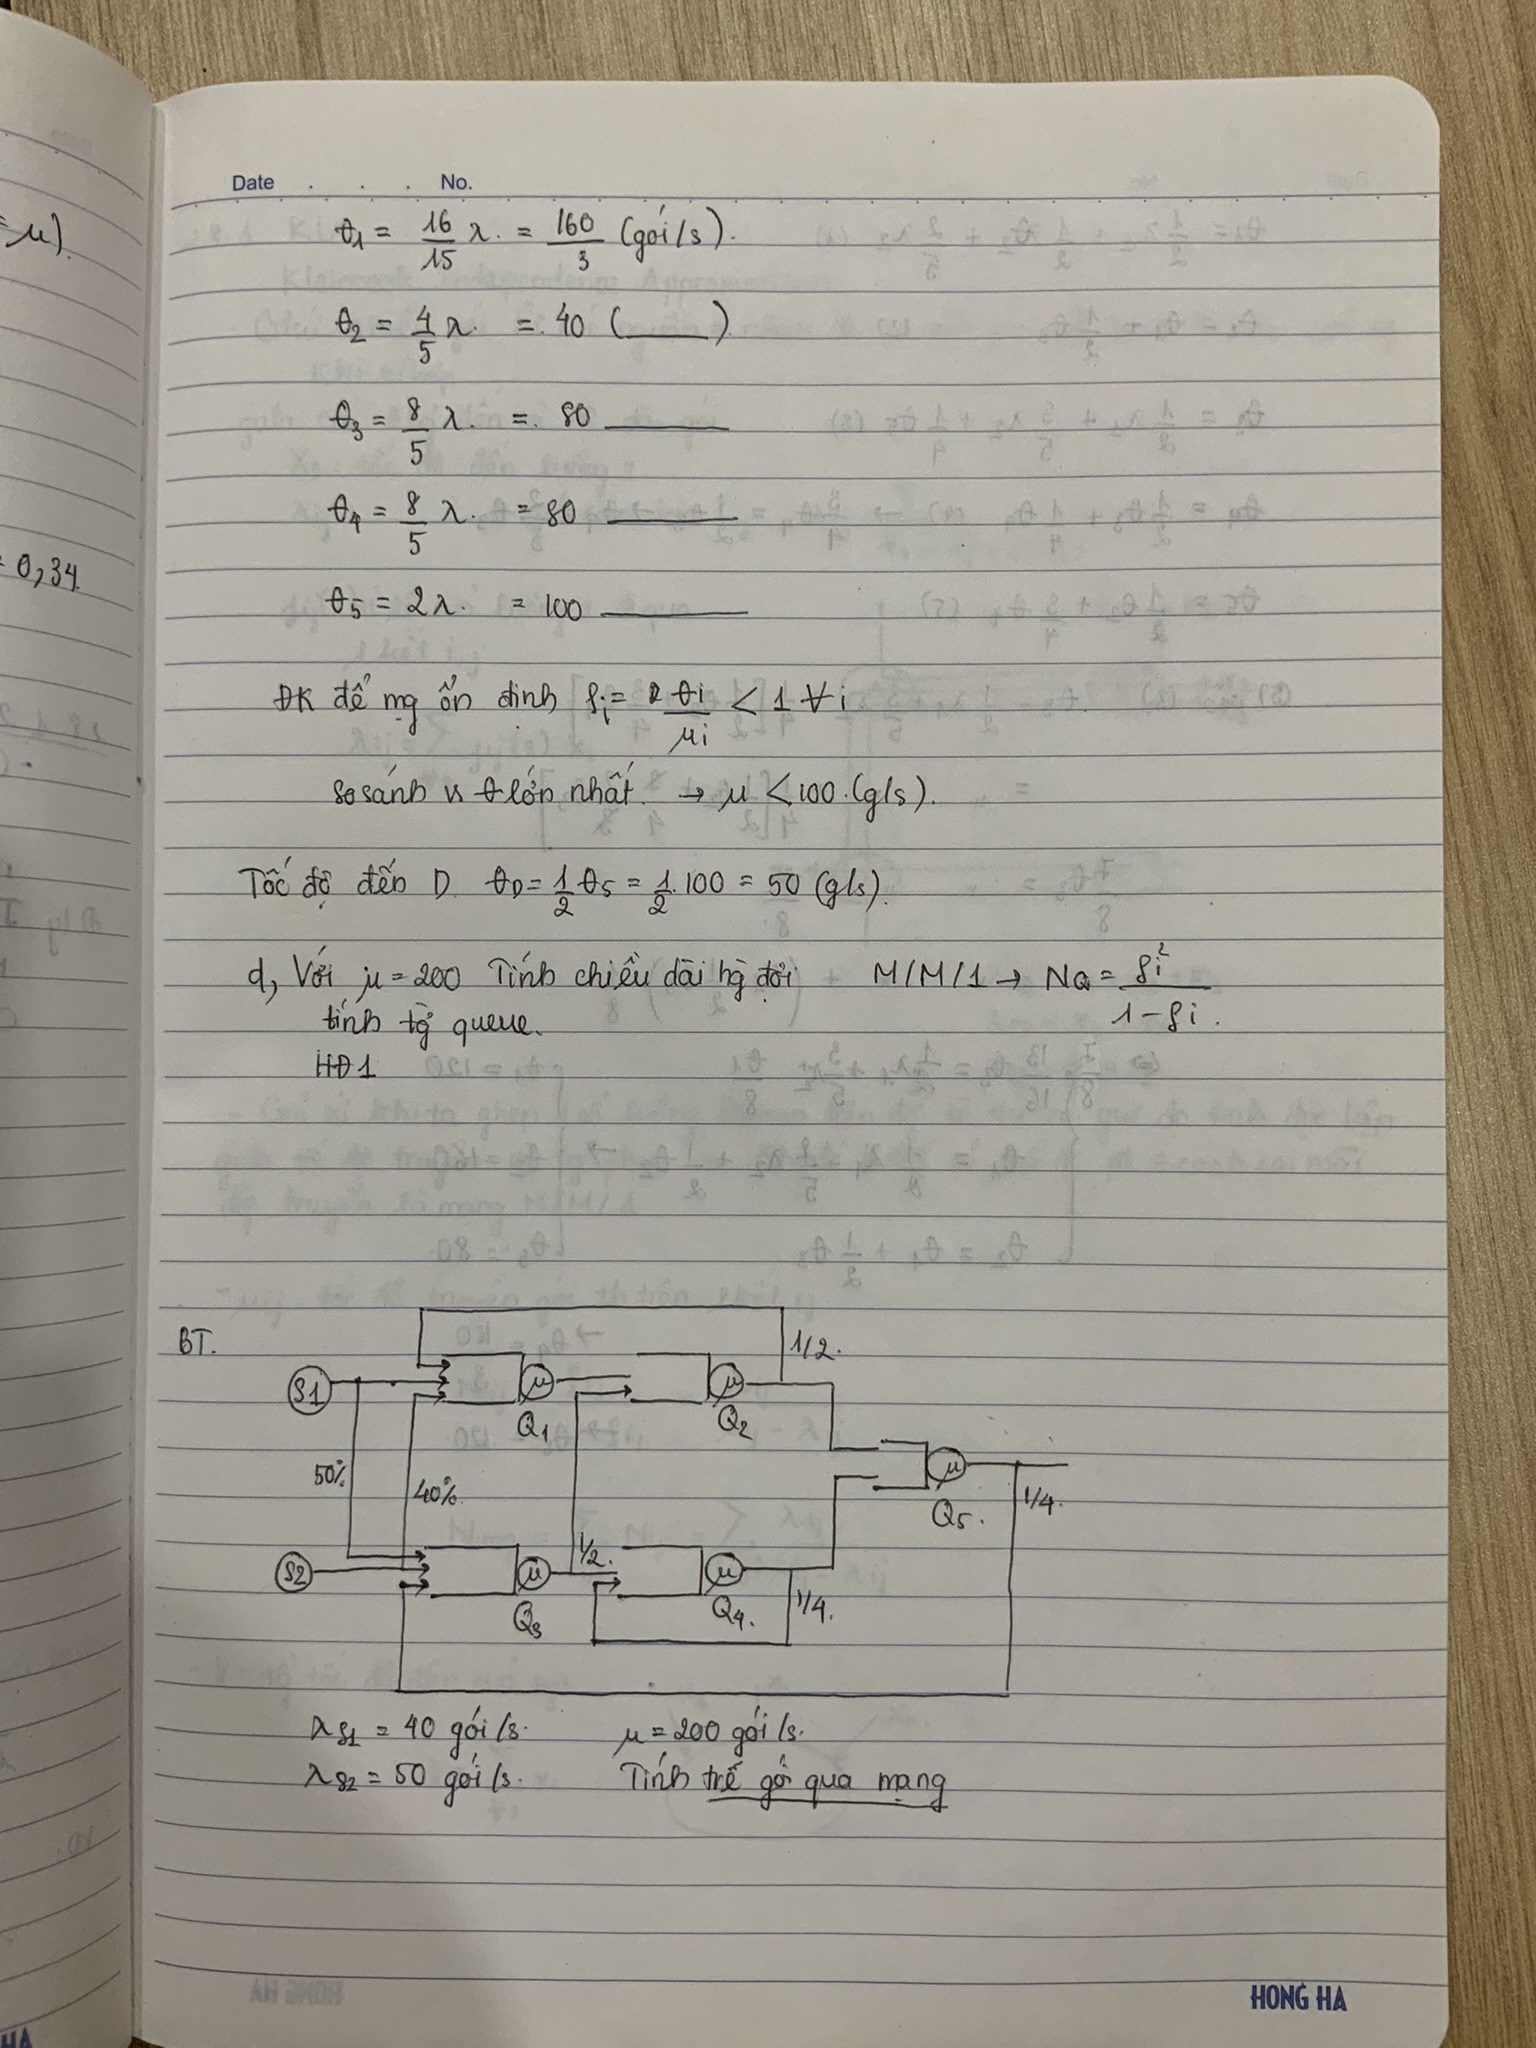 Date . . . No.
= μ).
θ1 = 16/15 λ. = 160/3 (gói/s).
θ2 = 4/5 λ. =. 40 (____).
θ3 = 8/5 λ. =. 80 ____
= 0,34.
θ4 = 8/5 λ. = 80 ____
θ5 = 2λ. = 100 ____
ĐK để mg ổn định ρi = θi/μi < 1 ∀i
so sánh vs θ lớn nhất. → μ < 100. (g/s).
Tốc độ đến D. θD = 1/2 θ5 = 1/2. 100 = 50 (g/s).
d, Với μ = 200 Tính chiều dài hg đợi M/M/1 → NQ = ρi²/1-ρi.
tính tg queue.
HĐ1
BT.
1/2.
S1 μ μ
Q1 Q2
50% 40% μ
Q5. 1/4.
S2 μ 1/2. μ
Q3 Q4. 1/4.
λS1 = 40 gói/s. μ = 200 gói/s.
λS2 = 50 gói/s. Tính trễ gói qua mạng
HONG HA
HA